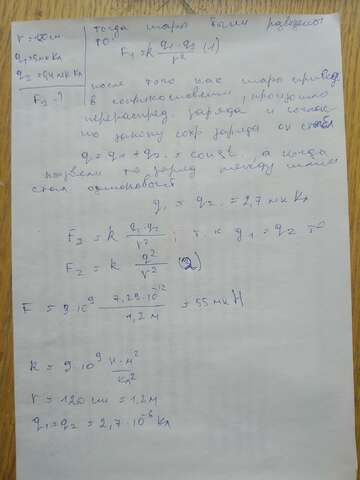 r = 120 см
q₁ = 5 мкКл
q₂ = 5,4 мкКл
F₂ - ?
Тогда шары были разведены
то:
F₁ = k q₁·q₂ / r² (1)
после того как шары привед.
в соприкосновение, произошло
перераспред. заряда и соглас
но закону сохр заряда он
q = q₁ + q₂ = const, а когда
развели то заряд между ними
стал одинаковый
q₁ = q₂ = 2,7 мкКл
F₂ = k q₁·q₂ / r² ; т.к q₁ = q₂ то
F₂ = k q² / r² (2)
F = 9·10⁹ 7,29·10⁻¹² / 1,2 м = 55 мкН
k = 9·10⁹ Н·м² / Кл²
r = 120 см = 1,2 м
q₁ = q₂ = 2,7·10⁻⁶ Кл